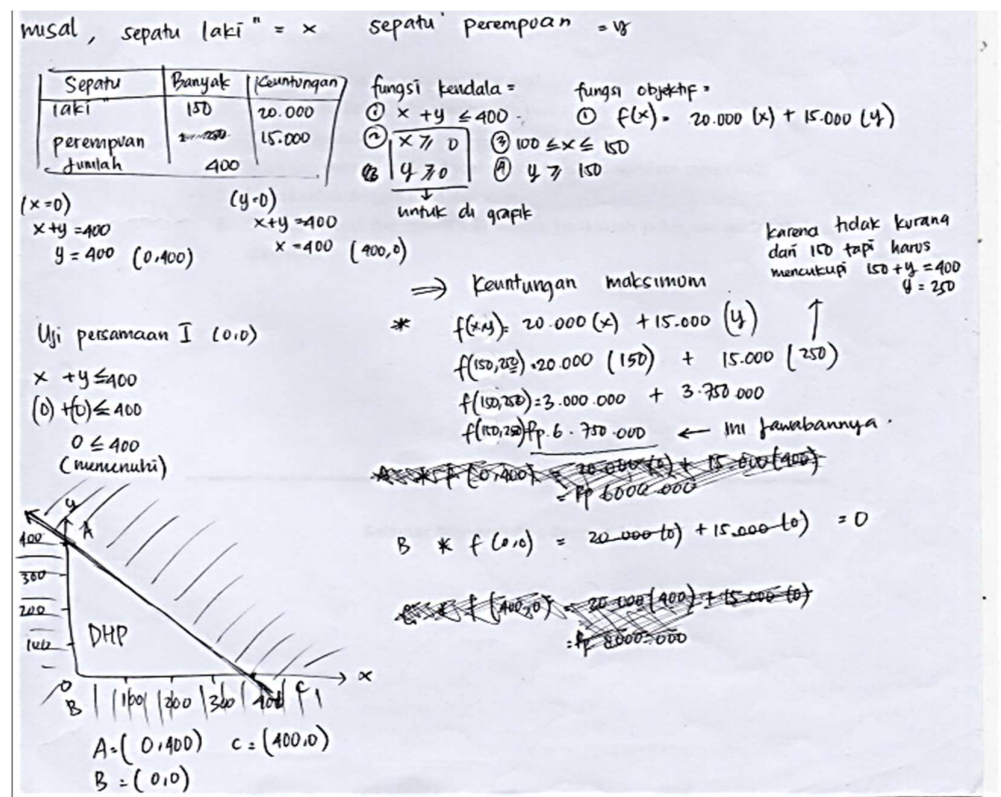 misal, sepatu laki" = x sepatu perempuan = y
Sepatu Banyak Keuntungan
laki" 150 20.000
perempuan 15.000
Jumlah 400
fungsi kendala =
① x + y ≤ 400
② x ≥ 0 ③ 100 ≤ x ≤ 150
y ≥ 0 ④ y ≥ 150
untuk di grafik
fungsi objektif =
① f(x) = 20.000 (x) + 15.000 (y)
(x=0)
x + y = 400
y = 400 (0,400)
(y=0)
x+y =400
x = 400 (400,0)
karena tidak kurang
dari 150 tapi harus
mencukupi 150 + y = 400
y = 250
⇒ Keuntungan maksimum
* f(x,y) = 20.000 (x) + 15.000 (y)
f(150,250) = 20.000 (150) + 15.000 (250)
f(150,250) = 3.000.000 + 3.750.000
f(150,250) Rp. 6.750.000 ← Ini Jawabannya.
Uji persamaan I (0,0)
x + y ≤ 400
(0) + (0) ≤ 400
0 ≤ 400
(memenuhi)
A * f (0,400) = 20.000 (0) + 15.000 (400)
= Rp 6000.000
B * f (0,0) = 20.000 (0) + 15.000 (0) = 0
f (400,0) = 20.000 (400) + 15.000 (0)
= Rp 8000.000
y
A
400
300
200
100
DHP
0 x
B 100 200 300 400 C
A = (0,400) C = (400,0)
B = (0,0)